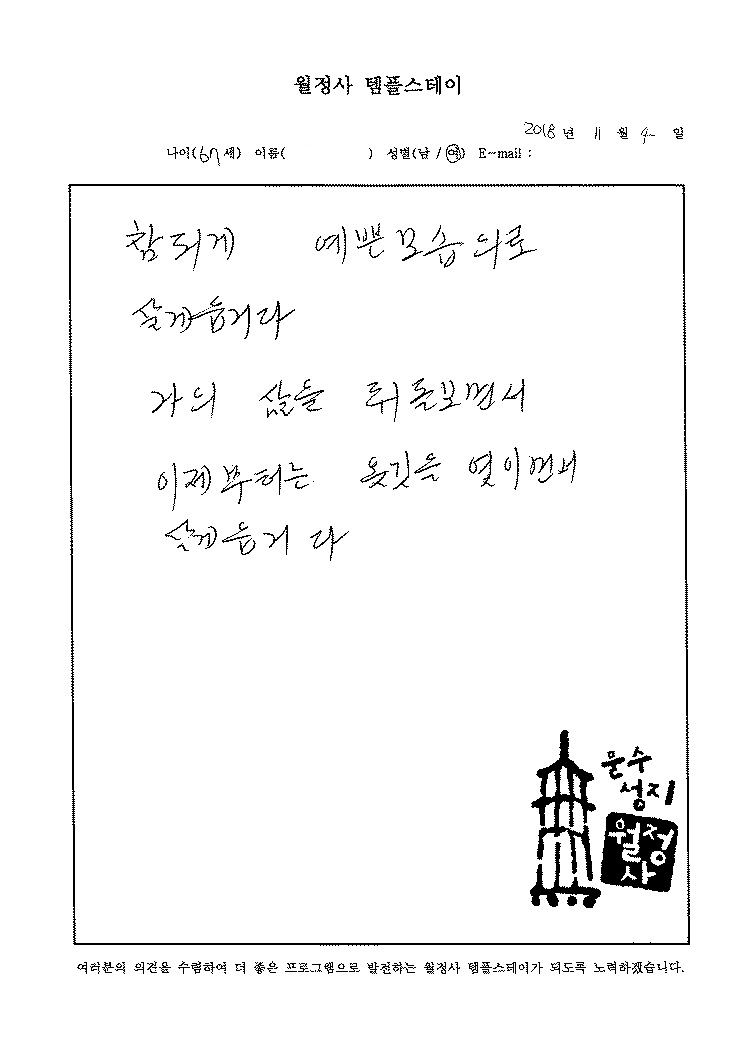 월정사 템플스테이
2018 년 11 월 4 일
나이(67 세) 이름( ) 성별(남 / 여) E-mail :
참되게 예쁜모습의로
살게습니다
나의 삶을 뒤돌보면서
이제부터는 옷깃을 엿이면서
살게습니다
문수
성지
월정
사
여러분의 의견을 수렴하여 더 좋은 프로그램으로 발전하는 월정사 템플스테이가 되도록 노력하겠습니다.